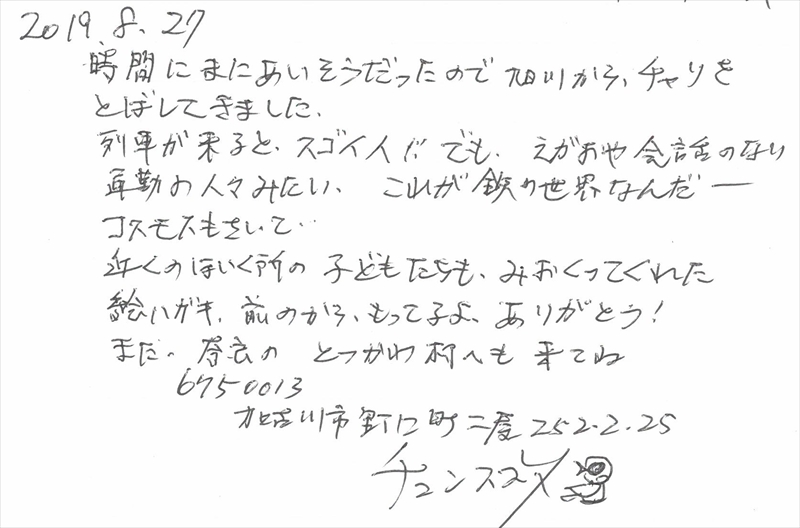 2019.8.27
時間にまにあいそうだったので旭川から、チャリを
とばしてきました.
列車が来ると、スゴイ人だ でも、えがおや会話のない
通勤の人々みたい、これが鉄の世界なんだー
コスモスもさいて‥
近くのほいく所の子どもたちも、みおくってくれた
絵ハガキ、前のから、もってるよ、ありがとう!
また、奈良の とつかわ村へも 来てね
6750013
加古川市野口町二屋252.2.25